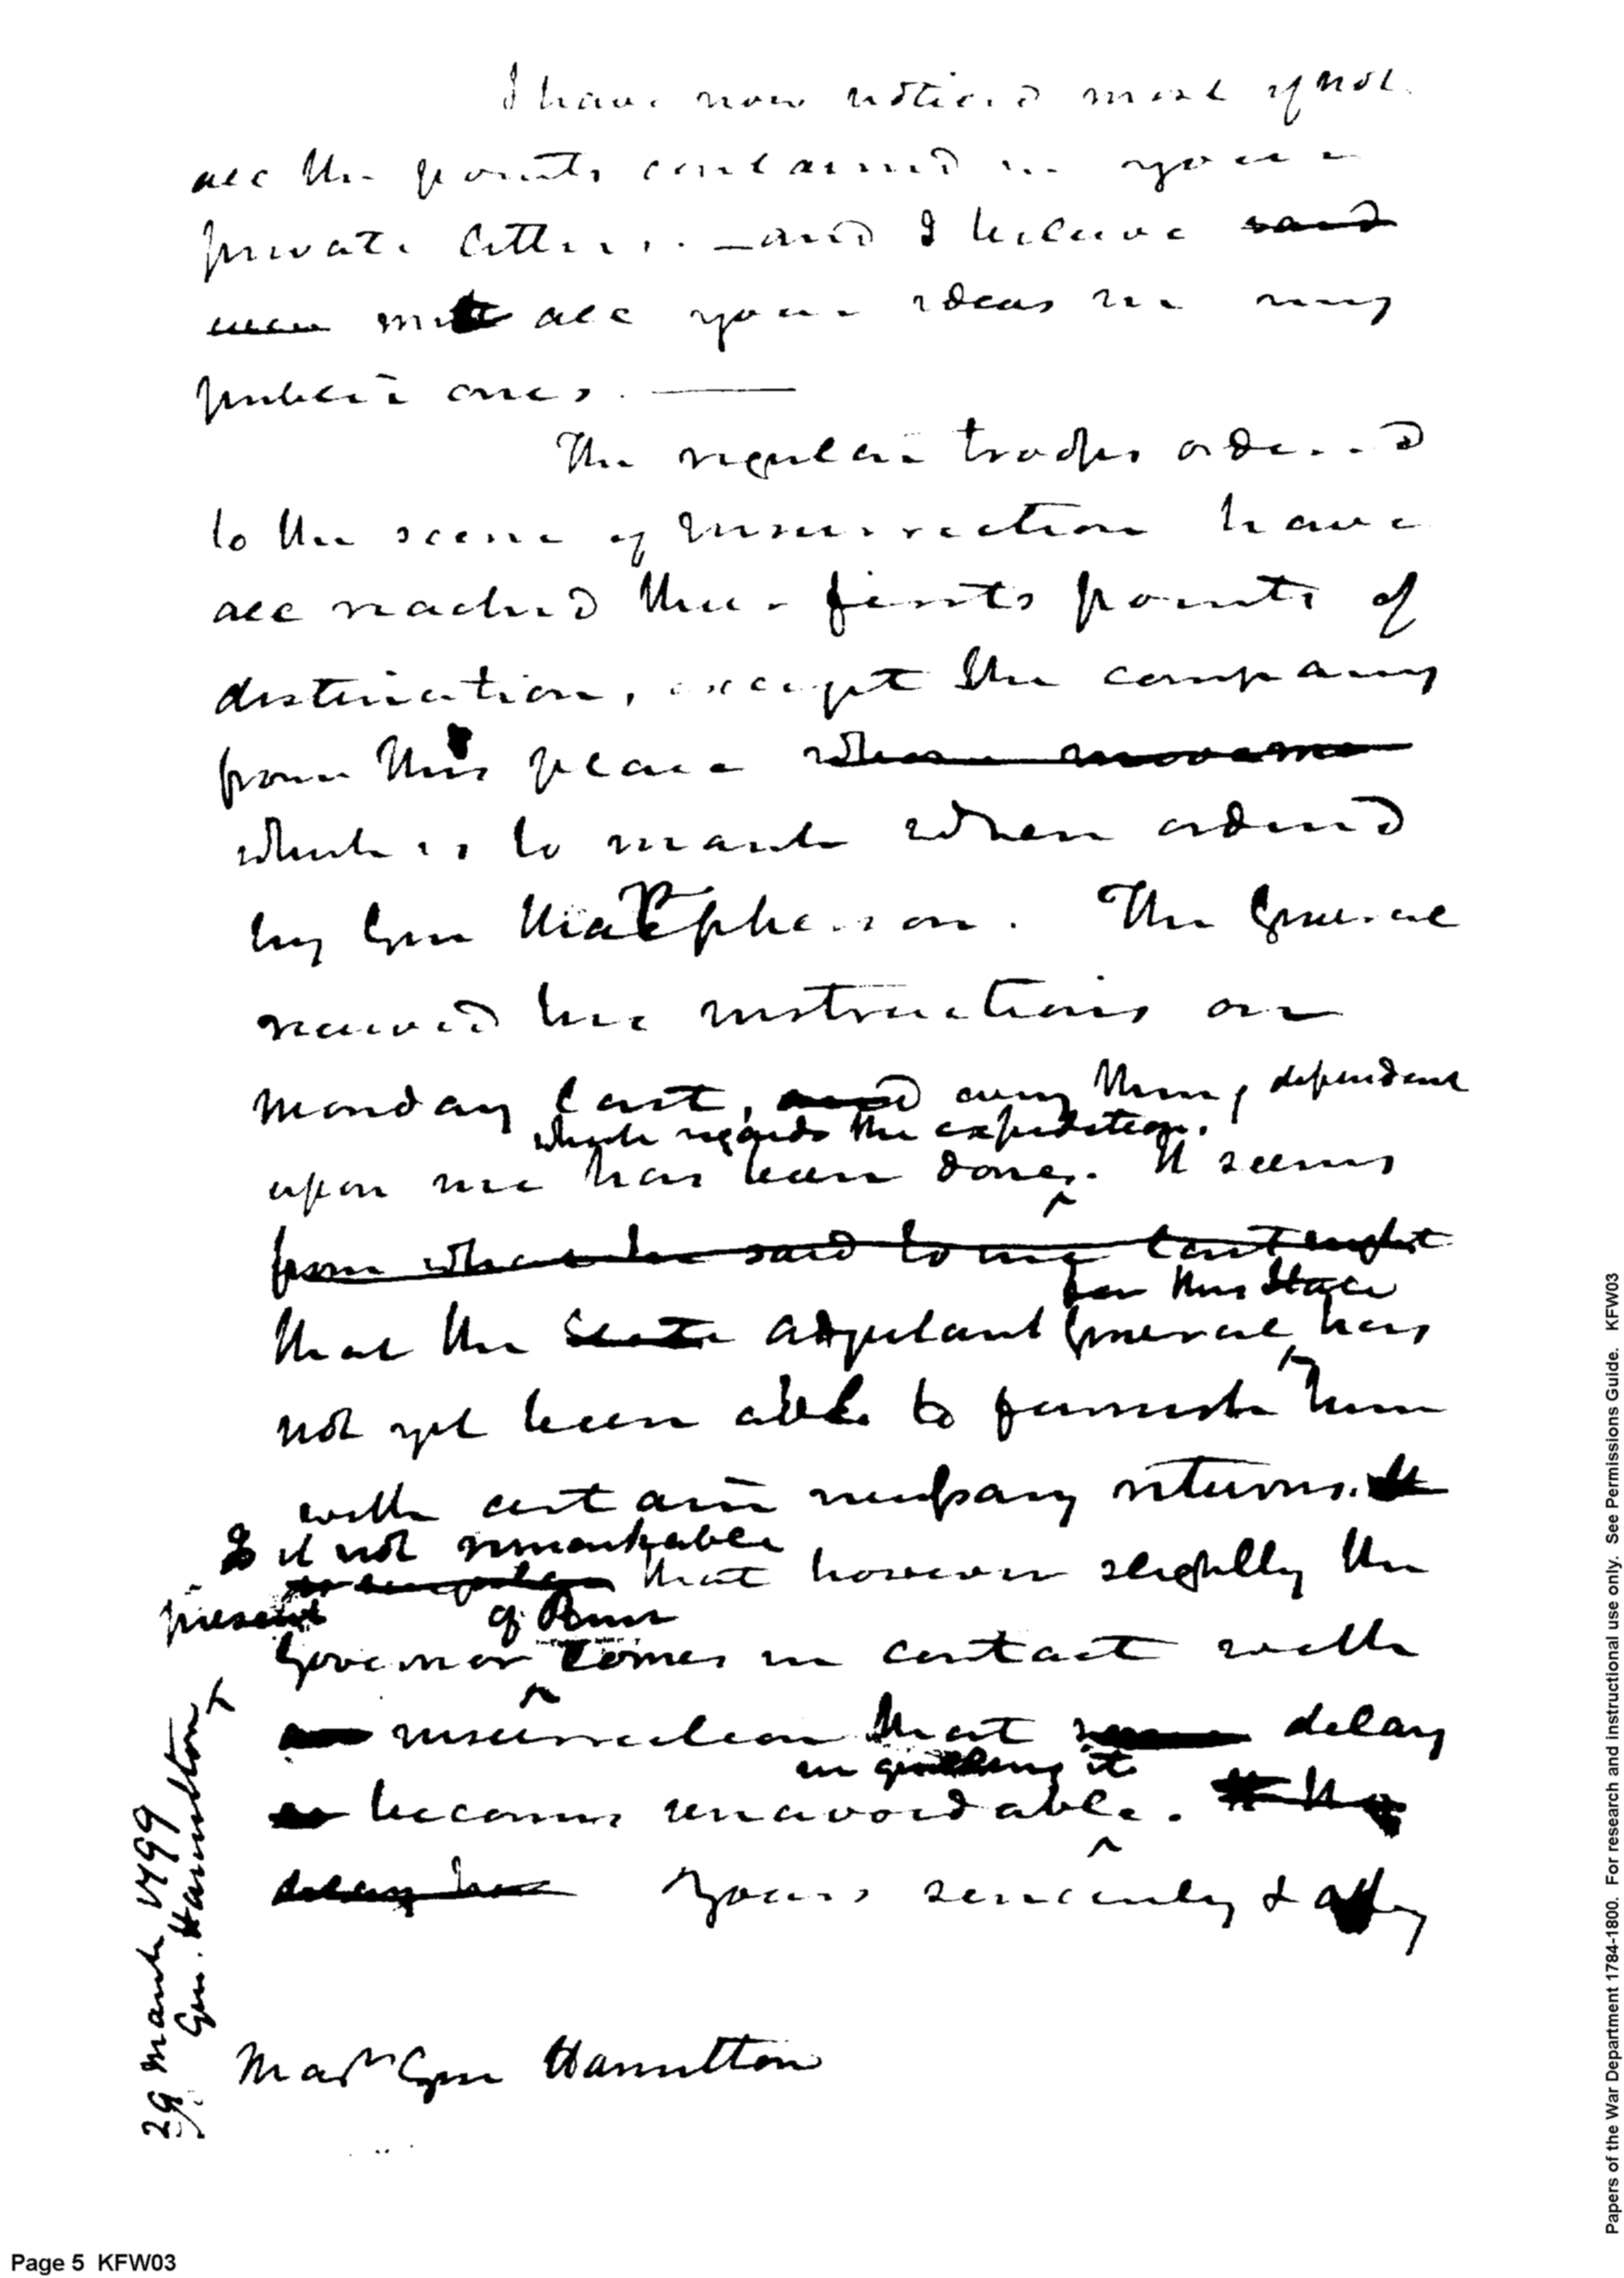 I have now noticed most if not
all the points contained in your
private letters. — and I believe said
met all your ideas in my
public ones. —
The regular troops ordered
to the scene of insurrection have
all reached their firsts points of
destination, except the company
from this place whose moveme
which is to march when ordered
by Gen MacPherson. The General
received his instructions on
monday last, and every thing dependent
which regards the expedition.
upon me has been done. It seems
from what he said to me last night
for this State
that the State adjutant General has
not yet been able to furnish him
with certain necessary returns. It
Is it not remarkable
is singular that however slightly the
present of Penns
Governor comes in contact with
an insurrection that some delay
in quelling it
becomes unavoidable. It
delay has Yours sincerely & affy
Majr Gen Hamilton
29 March 1799
Gen. Hamilton
Page 5 KFW03
Papers of the War Department 1784-1800. For research and instructional use only. See Permissions Guide. KFW03